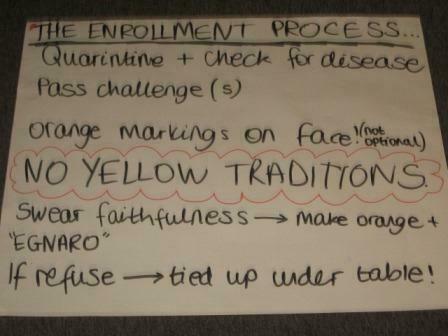 THE ENROLLMENT PROCESS...
Quarintine + check for disease
Pass challenge(s)
Orange markings on face! (not optional)
NO YELLOW TRADITIONS.
Swear faithfulness → make orange +
"EGNARO"
If refuse → tied up under table!